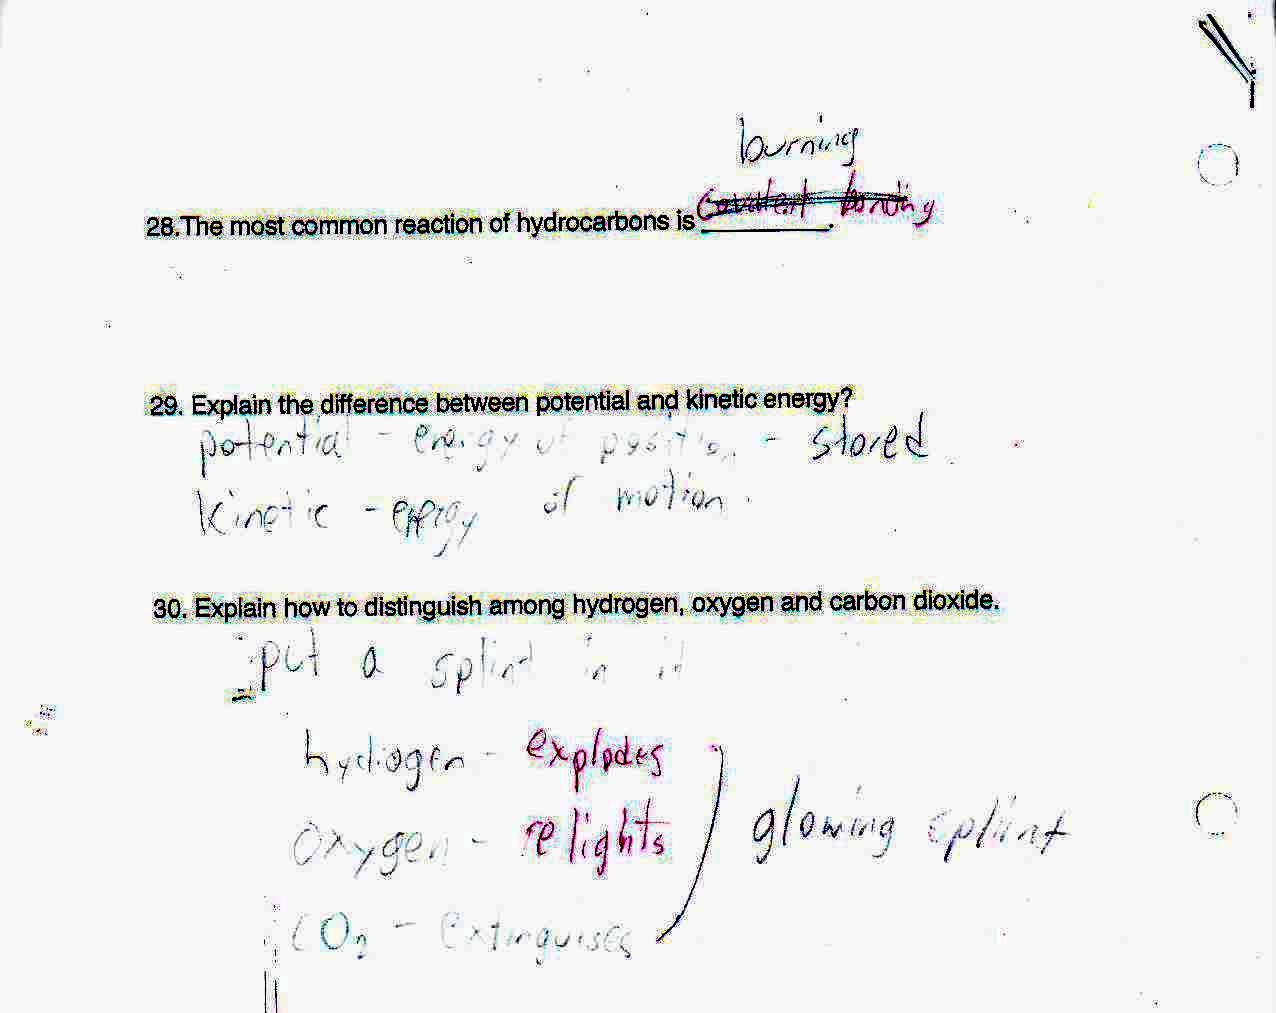 burning
28.The most common reaction of hydrocarbons is covalent bonding.
29. Explain the difference between potential and kinetic energy?
potential - energy of position - stored
kinetic - energy of motion.
30. Explain how to distinguish among hydrogen, oxygen and carbon dioxide.
put a splint in it
hydrogen - explodes
oxygen - relights
glowing splint
CO2 - extinguises